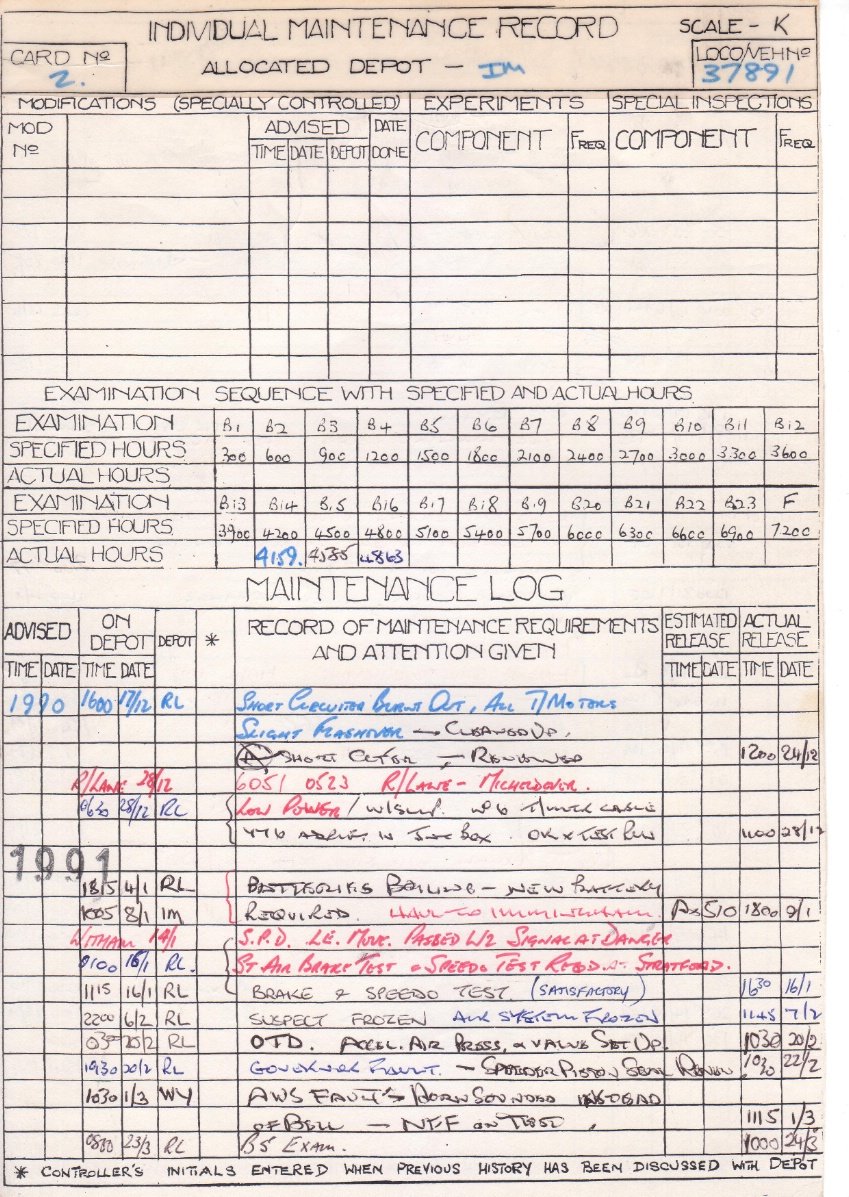 INDIVIDUAL MAINTENANCE RECORD SCALE - K
CARD Nº 2. ALLOCATED DEPOT - IM LOCO/VEH Nº 37891
MODIFICATIONS (SPECIALLY CONTROLLED) EXPERIMENTS SPECIAL INSPECTIONS
MOD Nº ADVISED DATE DONE COMPONENT FREQ COMPONENT FREQ
TIME DATE DEPOT
EXAMINATION SEQUENCE WITH SPECIFIED AND ACTUAL HOURS
EXAMINATION B1 B2 B3 B4 B5 B6 B7 B8 B9 B10 B11 B12
SPECIFIED HOURS 300 600 900 1200 1500 1800 2100 2400 2700 3000 3300 3600
ACTUAL HOURS
EXAMINATION B13 B14 B15 B16 B17 B18 B19 B20 B21 B22 B23 F
SPECIFIED HOURS 3900 4200 4500 4800 5100 5400 5700 6000 6300 6600 6900 7200
ACTUAL HOURS 4159. 4535 4863
MAINTENANCE LOG
ADVISED ON DEPOT DEPOT * RECORD OF MAINTENANCE REQUIREMENTS AND ATTENTION GIVEN ESTIMATED RELEASE ACTUAL RELEASE
TIME DATE TIME DATE TIME DATE TIME DATE
1990 1600 17/12 RL SHORT CIRCUITER BURNT OUT, ALL T/MOTORS
SLIGHT FLASHOVER - CLEANED UP.
(A) SHORT - RENEWED 1200 24/12
R/LANE 28/12 6051 0523 R/LANE - MICHELDEVER.
0630 28/12 RL LOW POWER / W/SLIP. Nº 6 CABLE
IN BOX. OK TEST RUN 1100 28/12
1991
1815 4/1 RL BATTERIES BOILING - NEW BATTERY
1005 8/1 IM REQUIRED. HAUL TO IMMINGHAM. 510 1800 9/1
WITHAM 14/1 S.P.D. LE. MOVE. PASSED W/2 SIGNAL AT DANGER
0100 16/1 RL. ST AIR BRAKE TEST & SPEEDO TEST REQD AT STRATFORD.
1115 16/1 RL BRAKE & SPEEDO TEST (SATISFACTORY) 1630 16/1
2200 6/2 RL SUSPECT FROZEN AIR SYSTEM FROZEN 1145 7/2
030 20/2 RL OTD. ACCEL. AIR PRESS, & VALVE SET UP. 1030 20/2
1930 20/2 RL GOVERNOR FAULT. - PISTON SEAL RENEW. 1030 22/2
1030 1/3 WY AWS FAULT - HORN SOUNDED INSTEAD
OF BELL - NFF ON TEST. 1115 1/3
0830 23/3 RL B5 EXAM. 1000 24/3
* CONTROLLER'S INITIALS ENTERED WHEN PREVIOUS HISTORY HAS BEEN DISCUSSED WITH DEPOT